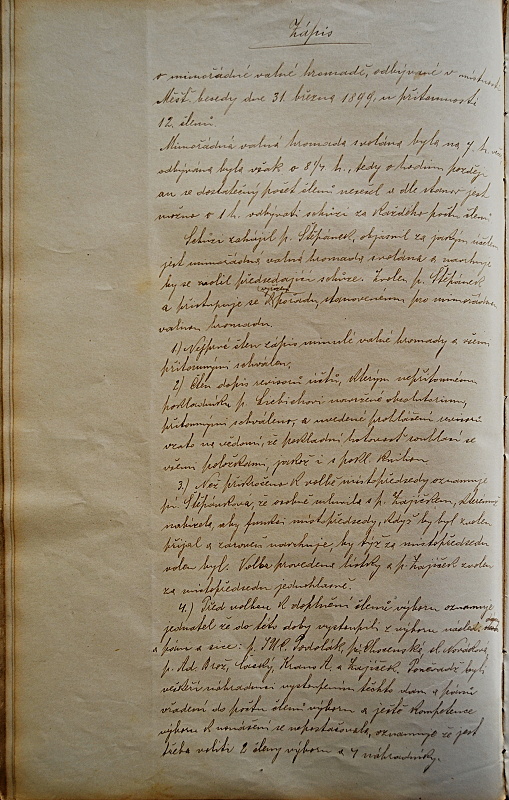 Zápis
o mimořádné valné hromadě, odbývané v místnosti
Měšť. besedy dne 31. března 1899, u přítomnosti
12 členů.
Mimořádná valná hromada svolána byla na 7. h.
odbývána byla však o 8 1/4 h., tedy o hodinu později
an se dostatečný počet členů nesešel a dle stanov jest
možno o 1 h. odbývati schůzi za každého počtu členů
Schůzi zahájil p. Štěpánek, objasnil za jakým účelem
jest mimořádná valná hromada svolána a navrhuje
by se zvolil předseda schůze. Zvolen p. Štěpánek
a přistupuje se k pořadu, stanovenému pro mimořádnou
valnou hromadu.
1.) Nejprvé čten zápis minulé valné hromady a všemi
přítomnými schválen.
2.) Čten dopis revisorů účtů, kterým nepřítomnému
pokladníku p. navrženo absolutorium,
přítomnými schváleno, a uvedené prohlášení revisorů
vzato na vědomí, že pokladní hotovost souhlasí se
všemi položkami, jakož i s pokl. knihou.
3.) Než přikročeno k volbě místopředsedy oznamuje
pí. Štěpánková, že osobně mluvila s p. Zajíčkem, kterému
nabízela, aby funkci místopředsedy, když by byl zvolen
přijal a zároveň navrhuje, by týž za místopředsedu
volen byl. Volba provedena lístky a p. Zajíček zvolen
za místopředsedu jednohlasně.
4.) Před volbou k doplnění členů výboru oznamuje
jednatel že do této doby vystoupili z výboru
a páni a sice: p. Podolák, pí. Chocenská, sl. Nováková,
p. Ad. Brož, Kraus A. a Zajíček. Poněvadž byli
veškeří náhradníci vystoupením těchto dam a pánů
vřaděni do počtu členů výboru a ještě kompetence
výboru k unášení se nepostačovala, oznamuje že jest
třeba voliti 2 členy výboru a 4 náhradníky.